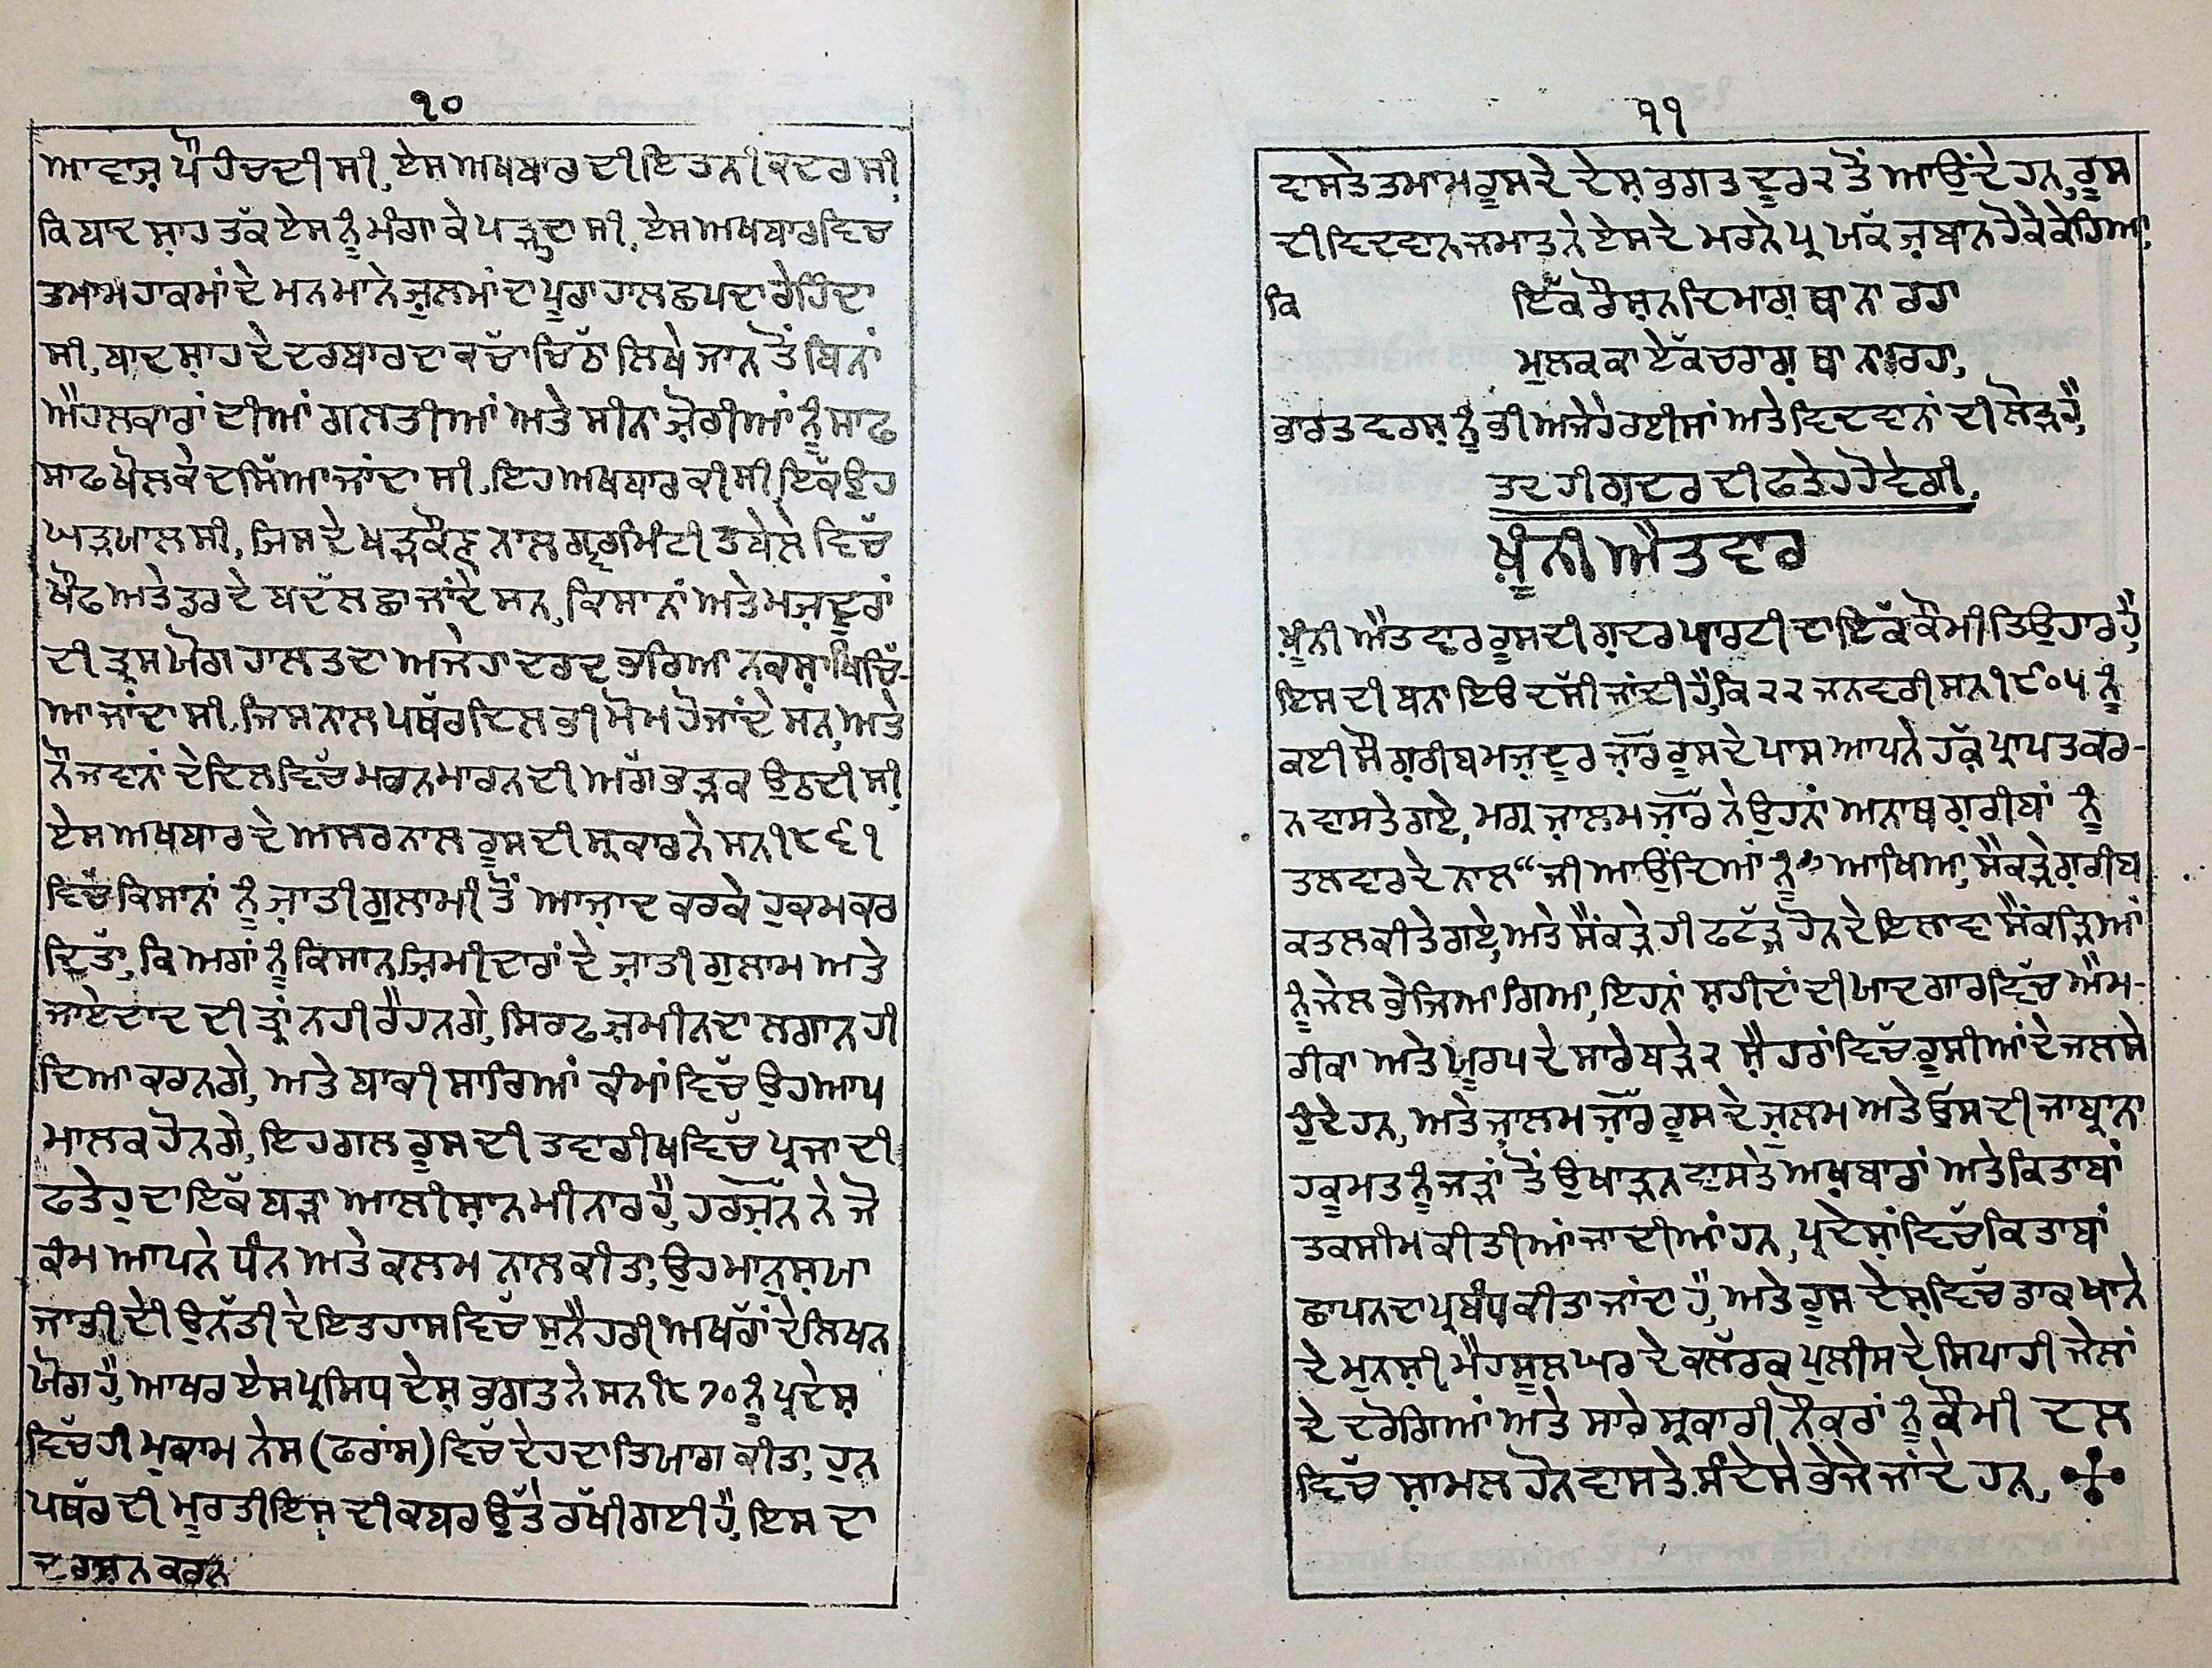 ੧੦
ਆਵਾਜ਼ ਪੌਹੰਚਦੀ ਸੀ, ਏਸ ਅਖਬਾਰ ਦੀ ਇਤਨੀ ਕਦਰ ਸੀ,
ਕਿ ਬਾਦਸ਼ਾਹ ਤੱਕ ਏਸ ਨੂੰ ਮੰਗਾ ਕੇ ਪੜ੍ਹਦਾ ਸੀ, ਏਸ ਅਖਬਾਰ ਵਿਚ
ਤਮਾਮ ਹਾਕਮਾਂ ਦੇ ਮਨਮਾਨੇ ਜ਼ੁਲਮਾਂ ਦਾ ਪੂਰਾ ਹਾਲ ਛਪਦਾ ਰੇਹਿੰਦਾ
ਸੀ, ਬਾਦਸ਼ਾਹ ਦੇ ਦਰਬਾਰ ਦਾ ਕਚੱਾ ਚਿਠੱਾ ਲਿਖੇ ਜਾਨ ਤੋਂ ਬਿਨਾਂ
ਐਹਲਕਾਰਾਂ ਦੀਆਂ ਗਲਤੀਆਂ ਅਤੇ ਸੀਨਾ ਜ਼ੋਰੀਆਂ ਨੂੰ ਸਾਫ
ਸਾਫ ਖੋਲਕੇ ਦਸਿੱਆ ਜਾਂਦਾ ਸੀ, ਇਹ ਅਖਬਾਰ ਕੀ ਸੀ, ਇਕੱ ਉਹ
ਘੜਯਾਲ ਸੀ, ਜਿਸ ਦੇ ਖੜਕੌਣ ਨਾਲ ਗ੍ਵਰਮਿੰਟੀ ਤਬੇਲੇ ਵਿਚੱ
ਖੌਫ ਅਤੇ ਡਰ ਦੇ ਬਦੱਲ ਛਾ ਜਾਂਦੇ ਸਨ, ਕਿਸਾਨਾਂ ਅਤੇ ਮਜ਼ਦੂਰਾਂ
ਦੀ ਤ੍ਰਸ ਯੋਗ ਹਾਲਤ ਦਾ ਅਜੇਹਾ ਦਰਦ ਭਰਿਆ ਨਕਸ਼ਾ ਖਿਚਿੱ-
ਆ ਜਾਂਦਾ ਸੀ, ਜਿਸ ਨਾਲ ਪਥੱਰ ਦਿਲ ਭੀ ਮੋਮ ਹੋ ਜਾਂਦੇ ਸਨ, ਅਤੇ
ਨੌਜਵਾਨਾਂ ਦੇ ਦਿਲ ਵਿਚੱ ਮਰਨ ਮਾਰਨ ਦੀ ਅਗੱ ਭੜਕ ਉਠਦੀ ਸੀ,
ਏਸ ਅਖਬਾਰ ਦੇ ਅਸਰ ਨਾਲ ਰੂਸ ਦੀ ਸ੍ਰਕਾਰ ਨੇ ਸਨ ੧੮੬੧
ਵਿਚੱ ਕਿਸਾਨਾਂ ਨੂੰ ਜ਼ਾਤੀ ਗੁਲਾਮੀ ਤੋਂ ਆਜ਼ਾਦ ਕਰਕੇ ਹੁਕਮ ਕਰ
ਦਿਤੱਾ, ਕਿ ਅਗਾਂ ਨੂੰ ਕਿਸਾਨ ਜ਼ਿਮੀਦਾਰਾਂ ਦੇ ਜ਼ਾਤੀ ਗੁਲਾਮ ਅਤੇ
ਜਾਏਦਾਦ ਦੀ ਤ੍ਰਾਂ ਨਹੀ ਰੈਹਨਗੇ, ਸਿਰਫ ਜ਼ਮੀਨ ਦਾ ਲਗਾਨ ਹੀ
ਦਿਆ ਕਰਨਗੇ, ਅਤੇ ਬਾਕੀ ਸਾਰਿਆਂ ਕੰਮਾਂ ਵਿਚੱ ਉਹ ਆਪ
ਮਾਲਕ ਹੋਨਗੇ, ਇਹ ਗਲ ਰੂਸ ਦੀ ਤਵਾਰੀਖ ਵਿਚੱ ਪ੍ਰਜਾ ਦੀ
ਫਤੇਹ ਦਾ ਇਕੱ ਬੜਾ ਆਲੀਸ਼ਾਨ ਮੀਨਾਰ ਹੈ, ਹਰਜ਼ੱਨ ਨੇ ਜੋ
ਕੰਮ ਆਪਨੇ ਧੰਨ ਅਤੇ ਕਲਮ ਨਾਲ ਕੀਤਾ, ਉਹ ਮਾਨੁਸ਼ਯਾ
ਜਾਤੀ ਦੀ ਉਨੱਤੀ ਦੇ ਇਤਹਾਸ ਵਿਚੱ ਸੁਨੈਹਰੀ ਅਖਰਾਂ ਦੇ ਲਿਖਨ
ਯੋਗ ਹੈ, ਆਖਰ ਏਸ ਪ੍ਰਸਿਧ ਦੇਸ਼ ਭਗਤ ਨੇ ਸਨ ੧੮੭੦ ਨੂੰ ਪ੍ਰਦੇਸ਼
ਵਿਚੱ ਹੀ ਮੁਕਾਮ ਨੇਸ (ਫਰਾਂਸ) ਵਿਚੱ ਦੇਹ ਦਾ ਤਿਯਾਗ ਕੀਤਾ, ਹੁਨ
ਪਥੱਰ ਦੀ ਮੂਰਤੀ ਇਸ ਦੀ ਕਬਰ ਉਤੱੇ ਰਖੱੀ ਗਈ ਹੈ, ਇਸ ਦਾ
ਦਰਸ਼ਨ ਕਰਨ
੧੧
ਵਾਸਤੇ ਤਮਾਮ ਰੂਸ ਦੇ ਦੇਸ਼ ਭਗਤ ਦੂਰ ੨ ਤੋਂ ਆਉਂਦੇ ਹਨ, ਰੂਸ
ਦੀ ਵਿਦਵਾਨ ਜਮਾਤ ਨੇ ਏਸ ਦੇ ਮਰਨੇ ਪ੍ਰ ਯਕੱ ਜ਼ਬਾਨ ਹੋਕੇ ਕੇਹਿਆ,
ਕਿ ਇਕੱ ਰੌਸ਼ਨ ਦਿਮਾਗ਼ ਥਾ ਨਾ ਰਹਾ
ਮੁਲਕ ਕਾ ਏਕੱ ਚਰਾਗ਼ ਥਾ ਨਾ ਰਹਾ,
ਭਾਰਤ ਵਰਸ਼ ਨੂੰ ਭੀ ਅਜੇਹੇ ਰਈਸਾਂ ਅਤੇ ਵਿਦਵਾਨਾਂ ਦੀ ਲੋੜ ਹੈ,
ਤਦ ਹੀ ਗ਼ਦਰ ਦੀ ਫਤੇ ਹੋਵੇਗੀ,
ਖ਼ੂੰਨੀ ਐਤਵਾਰ
ਖ਼ੂੰਨੀ ਐਤਵਾਰ ਰੂਸ ਦੀ ਗ਼ਦਰ ਪਾਰਟੀ ਦਾ ਇਕੱ ਕੌਮੀ ਤਿਉਹਾਰ ਹੈ,
ਇਸ ਦੀ ਬਨਾ ਇਉਂ ਦਸੱੀ ਜਾਂਦੀ ਹੈ, ਕਿ ੨੨ ਜਨਵਰੀ ਸਨ ੧੯੦੫ ਨੂੰ
ਕਈ ਸੌ ਗ਼ਰੀਬ ਮਜ਼ਦੂਰ ਜ਼ਾਰ ਰੂਸ ਦੇ ਪਾਸ ਆਪਨੇ ਹਕੱ ਪ੍ਰਾਪਤ ਕਰ-
ਨ ਵਾਸਤੇ ਗਏ, ਮਗ੍ਰ ਜ਼ਾਲਮ ਜ਼ਾਰ ਨੇ ਉਹਨਾਂ ਅਨਾਥ ਗ਼ਰੀਬਾਂ ਨੂੰ
ਤਲਵਾਰ ਦੇ ਨਾਲ “ਜੀ ਆਉਂਦਿਆਂ ਨੂੰ” ਆਖਿਆ, ਸੈਕੜੇ ਗ਼ਰੀਬ
ਕਤਲ ਕੀਤੇ ਗਏ, ਅਤੇ ਸੈਂਕੜੇ ਹੀ ਫਟੱੜ ਹੋਨ ਦੇ ਇਲਾਵਾ ਸੈਂਕੜਿਆਂ
ਨੂੰ ਜੇਲ ਭੇਜਿਆ ਗਿਆ, ਇਹਨਾਂ ਸ਼ਹੀਦਾਂ ਦੀ ਯਾਦਗਾਰ ਵਿਚੱ ਐਮ-
ਰੀਕਾ ਅਤੇ ਯੂਰਪ ਦੇ ਸਾਰੇ ਬੜੇ ੨ ਸ਼ੈਹਰਾਂ ਵਿਚੱ ਰੂਸੀਆਂ ਦੇ ਜਲਸੇ
ਹੁੰਦੇ ਹਨ, ਅਤੇ ਜ਼ਾਲਮ ਜ਼ਾਰ ਰੂਸ ਦੇ ਜ਼ੁਲਮ ਅਤੇ ਉਸ ਦੀ ਜਾਬ੍ਰਾਨਾ
ਹਕੂਮਤ ਨੂੰ ਜੜਾਂ ਤੋਂ ਉਖਾੜਨ ਵਾਸਤੇ ਅਖ਼ਬਾਰਾਂ ਅਤੇ ਕਿਤਾਬਾਂ
ਤਕਸੀਮ ਕੀਤੀਆਂ ਜਾਦੀਆਂ ਹਨ, ਪ੍ਰਦੇਸ਼ਾਂ ਵਿਚੱ ਕਿਤਾਬਾਂ
ਛਾਪਨ ਦਾ ਪ੍ਰਬੰਧ ਕੀਤਾ ਜਾਂਦਾ ਹੈ, ਅਤੇ ਰੂਸ ਦੇਸ਼ ਵਿਚੱ ਡਾਕਖਾਨੇ
ਦੇ ਮੁਨਸ਼ੀ, ਮੈਹਸੂਲ ਘਰ ਦੇ ਕਲੱਰਕ ਪੁਲੀਸ ਦੇ ਸਿਪਾਹੀ ਜੇਲਾਂ
ਦੇ ਦਰੋਗਿਆਂ ਅਤੇ ਸਾਰੇ ਸ੍ਰਕਾਰੀ ਨੌਕਰਾਂ ਨੂੰ ਕੌਮੀ ਦਲ
ਵਿਚੱ ਸ਼ਾਮਲ ਹੋਨ ਵਾਸਤੇ ਸੰਦੇਸੇ ਭੇਜੇ ਜਾਂਦੇ ਹਨ,